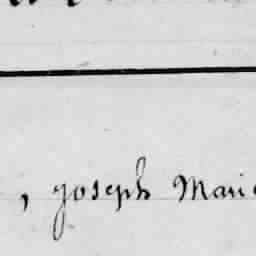 , joseph Marie